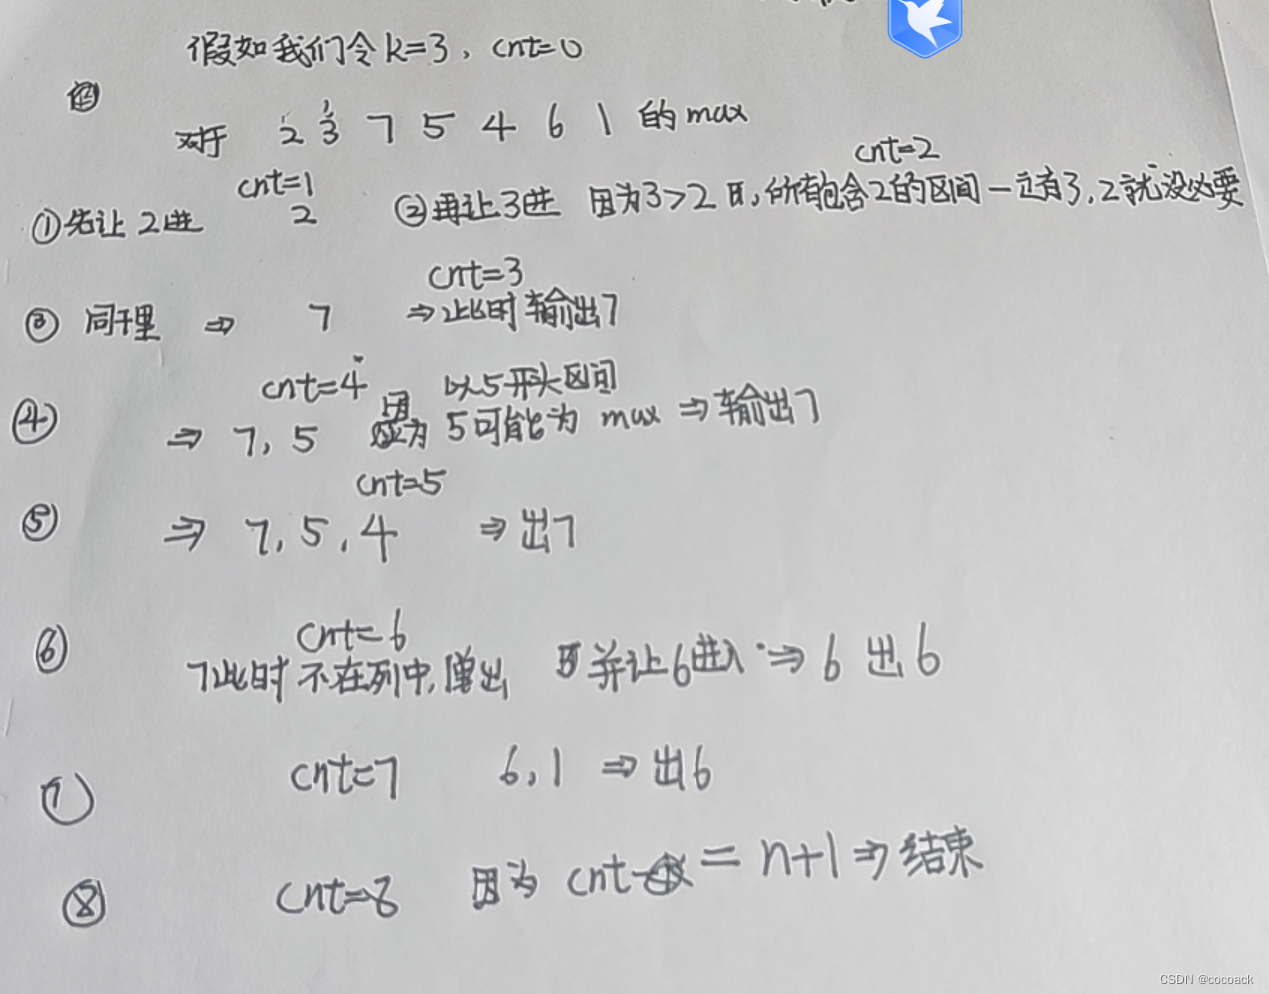 假如我们令k=3，cnt=0
对于 2 3 7 5 4 6 1 的max
cnt=1 cnt=2
①先让2进 2 ②再让3进 因为3>2 所有包含2的区间一定有3,2就没必要
cnt=3
③ 同理 ⇒ 7 ⇒此时输出7
cnt=4 以5开头区间
④ ⇒ 7, 5 因为 5可能为 max ⇒输出7
cnt=5
⑤ ⇒ 7, 5, 4 ⇒出7
cnt=6
⑥ 7此时不在列中,弹出 并让6进入⇒6 出6
⑦ cnt=7 6, 1 ⇒出6
⑧ cnt=8 因为 cnt = n+1⇒结束
CSDN @cocoack